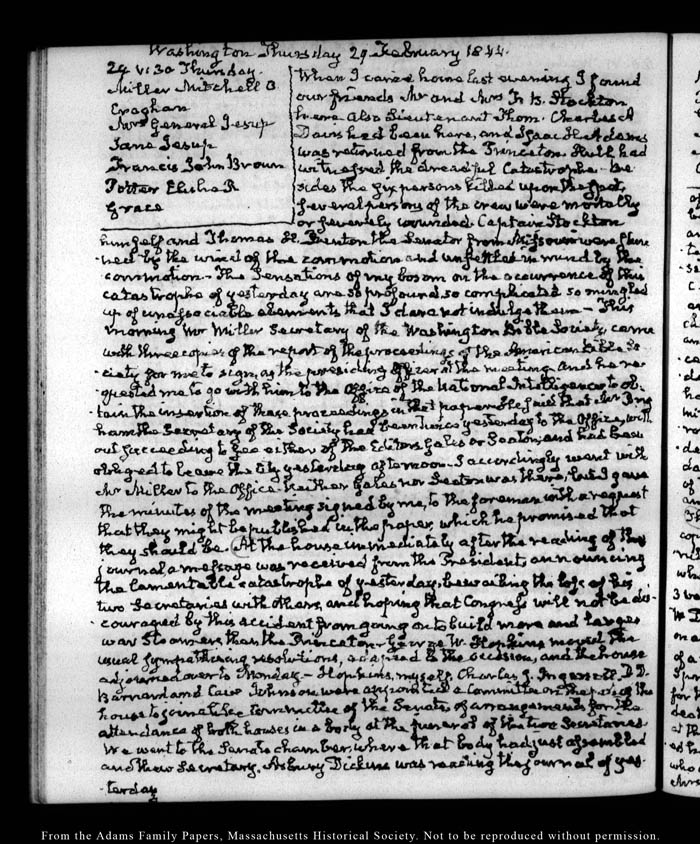 Washington Thursday 29 February 1844.
29. V:30 Thursday.
Miller Mitchell O
Croghan
Mrs General Jesup
Jane Jesup
Francis John Brown
Potter Elisha R
Grace
When I came home last evening I found
our friends Mr and Mrs
here also Lieutenant Thom. Charles A
Davis had been here, and Isaac H. Adams
was returned from the Princeton. He had
witnessed the dreadful Catastrophe. be-
sides the six persons killed upon the spot,
several persons of the crew were mortally
or severely wounded. Captain Stockton
himself and Thomas H. Benton the Senator from Missouri were stun
ned by the wind of the commotion and unsettled in mind by the
commotion. The Sensations of my bosom on the occurrence of this
catastrophe of yesterday are so profound, so complicated so mingled
up of unassociable elements that I dare not indulge them — This
morning Mr Miller Secretary of the Washington Bible Society, came
with three copies of the report of the proceedings of the American Bible So-
ciety, for me to sign, as the presiding Officer at the meeting. and he re-
quested me to go with him to the Office of the National Intelligencer to ob-
tain the insertion of these proceedings in that paper. He said that Mr
ham the Secretary of the Society had been twice yesterday to the Office, with
out succeeding to see either of the Editors Gales or Seaton; and had been
obliged to leave the City yesterday afternoon. I accordingly went with
Mr Miller to the Office. Neither Gales nor Seaton was there, but I gave
the minutes of the meeting signed by me, to the foreman with a request
that they might be published in the paper, which he promised that
they should be. At the house immediately after the reading of the
journal a message was received from the President, announcing
the lamentable catastrophe of yesterday, bewailing the loss of his
two Secretaries with others, and hoping that Congress will not be dis-
couraged by this accident from going on to build more and larger
war Steamers than the Princeton. George W. Hopkins moved the
usual sympathising resolutions, adapted to the occasion, and the house
adjourned over to Monday — Hopkins, myself, Charles J. Ingersoll, D. D.
Barnard and Cave Johnson were appointed a Committee on the part of the
house to join a like Committee of the Senate of arrangements for the
attendance of both houses in a body at the funeral of the two Secretaries.
We went to the Senate chamber, where that body had just assembled
and their Secretary, Asbury Dickins was reading the journal of yes-
terday
From the Adams Family Papers, Massachusetts Historical Society. Not to be reproduced without permission.